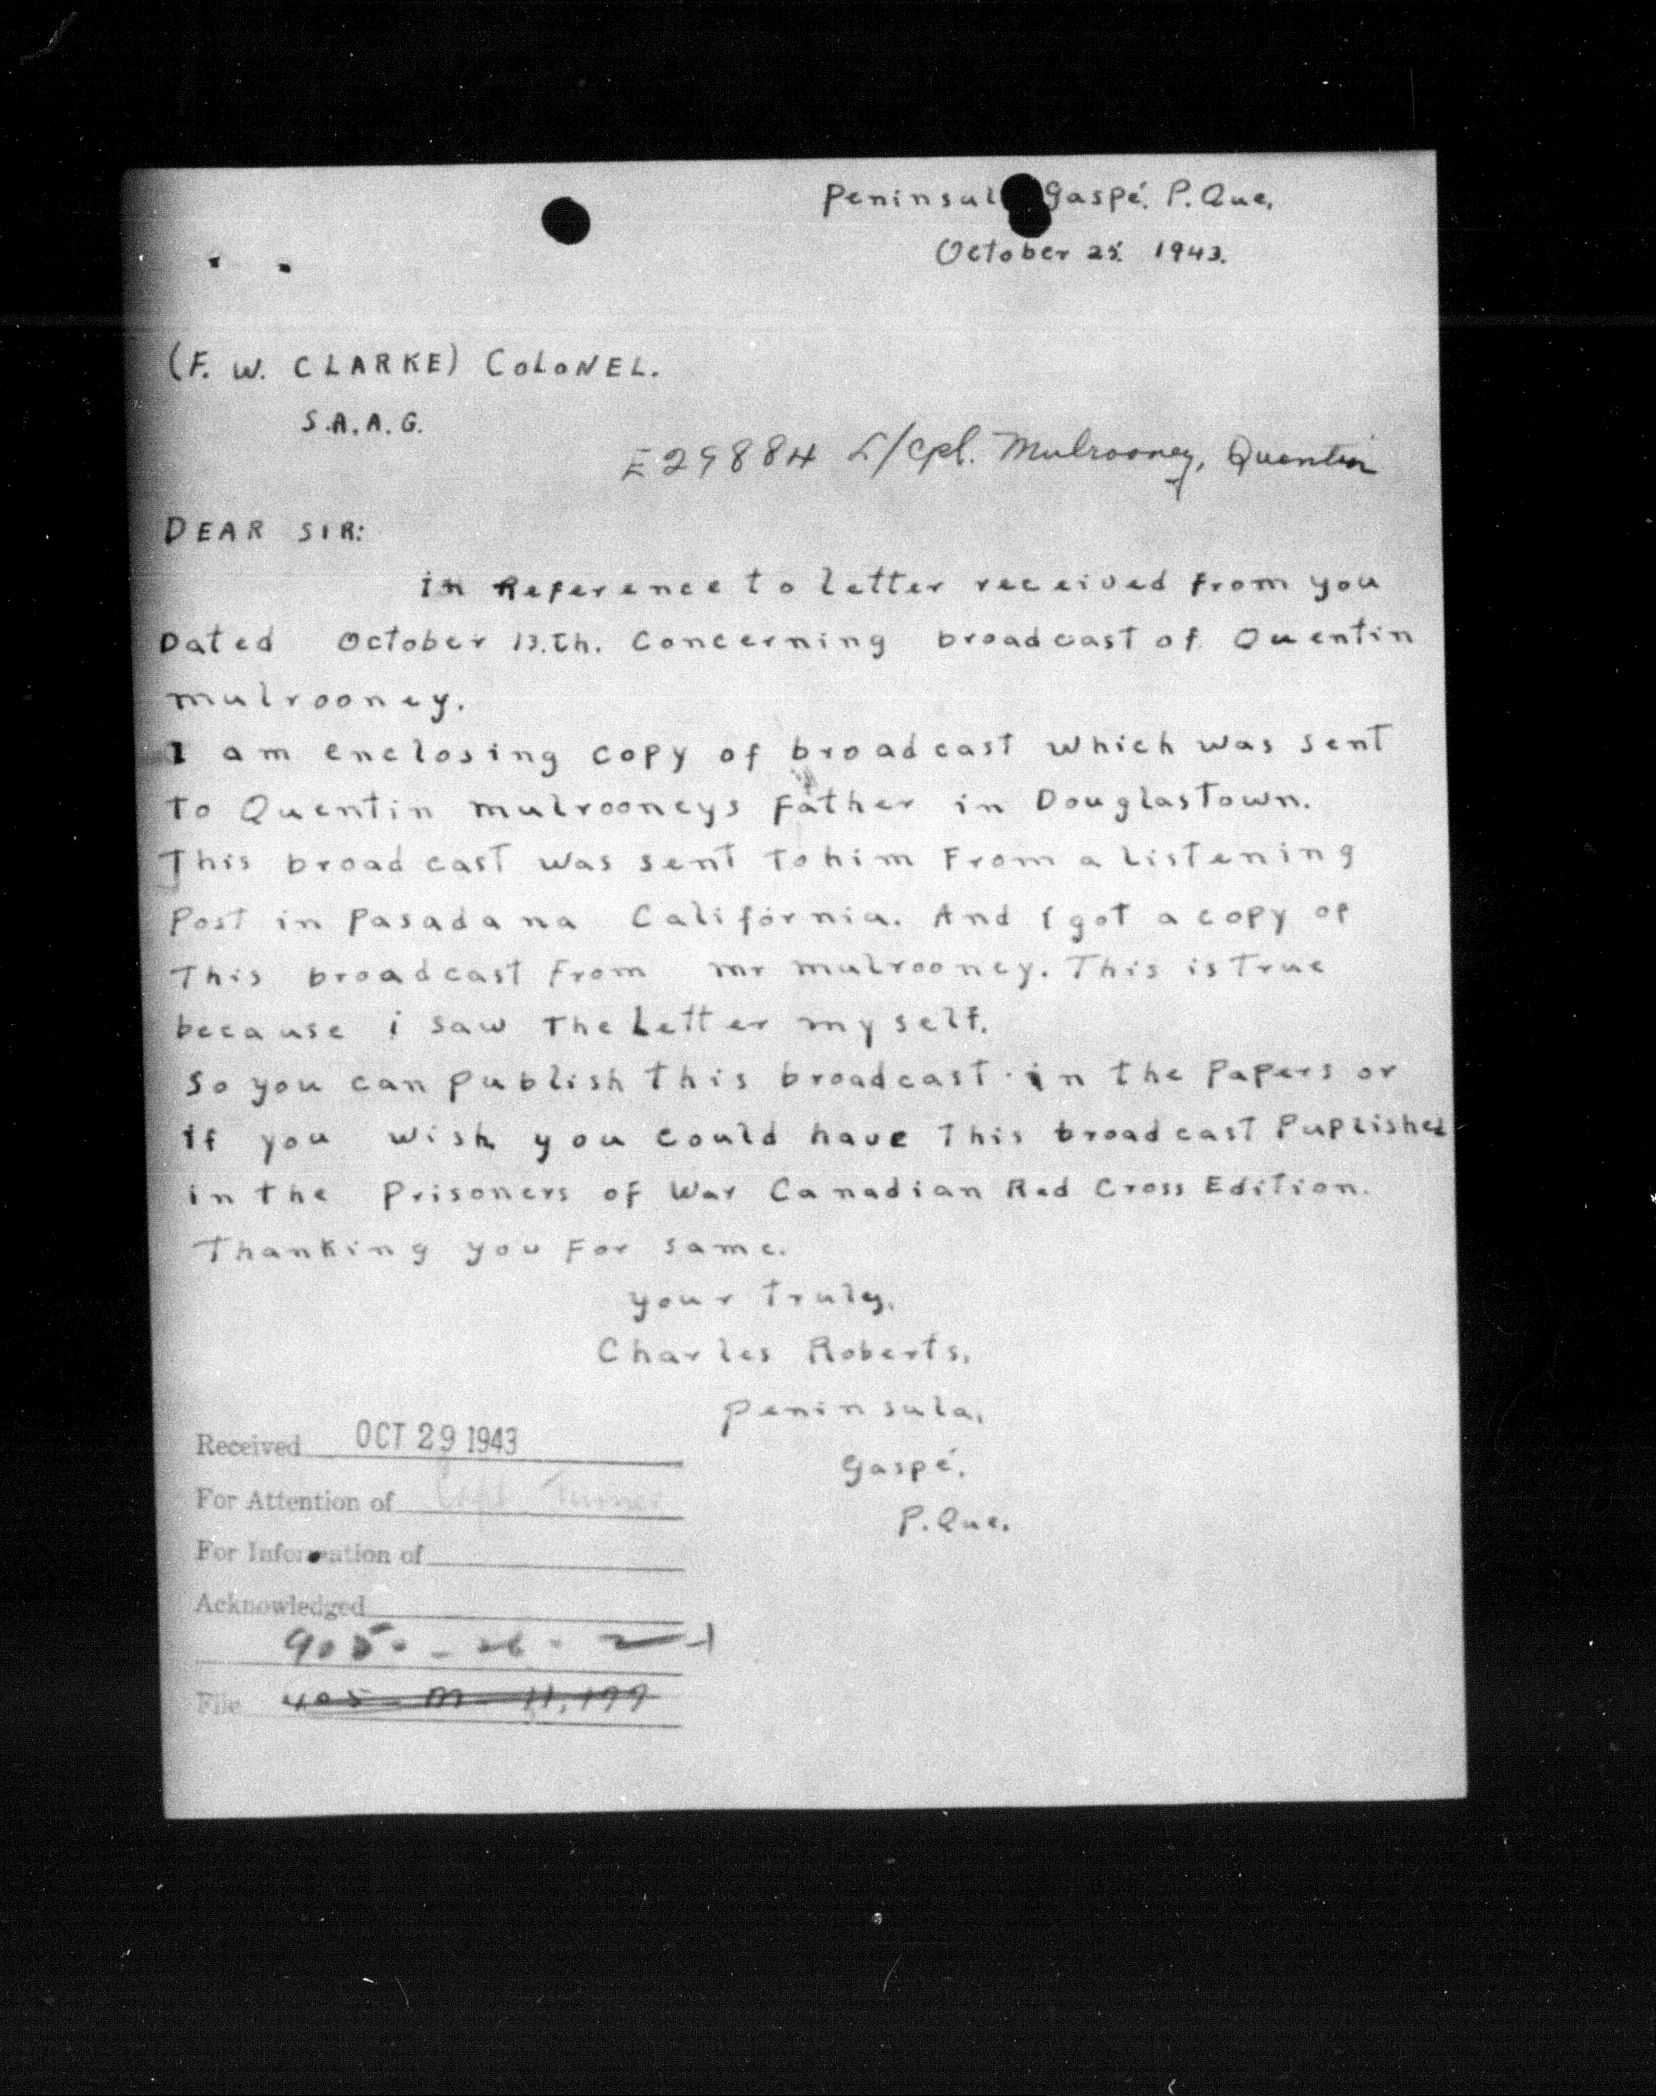 Peninsul Gaspé. P. Que.
October 25. 1943.
(F. W. CLARKE) COLONEL.
S.A.A.G.
E29884 L/Cpl. Mulrooney, Quentin
DEAR SIR:
in Reference to letter received from you
Dated October 13.th. Concerning broadcast of Quentin
mulrooney.
I am enclosing copy of broadcast which was sent
To Quentin mulrooneys Father in Douglastown.
This broadcast was sent to him From a Listening
Post in Pasadana California. And I got a copy of
This broadcast From mr mulrooney. This is True
because i saw The Letter myself.
So you can publish this broadcast in the Papers or
if you wish you could have This broadcast Puplished
in the Prisoners of War Canadian Red Cross Edition.
Thanking you For same.
your Truly,
Charles Roberts,
Peninsula,
Gaspé.
P. Que.
Received OCT 29 1943
For Attention of Turner
For Information of
Acknowledged
File 405 - M - 11,199